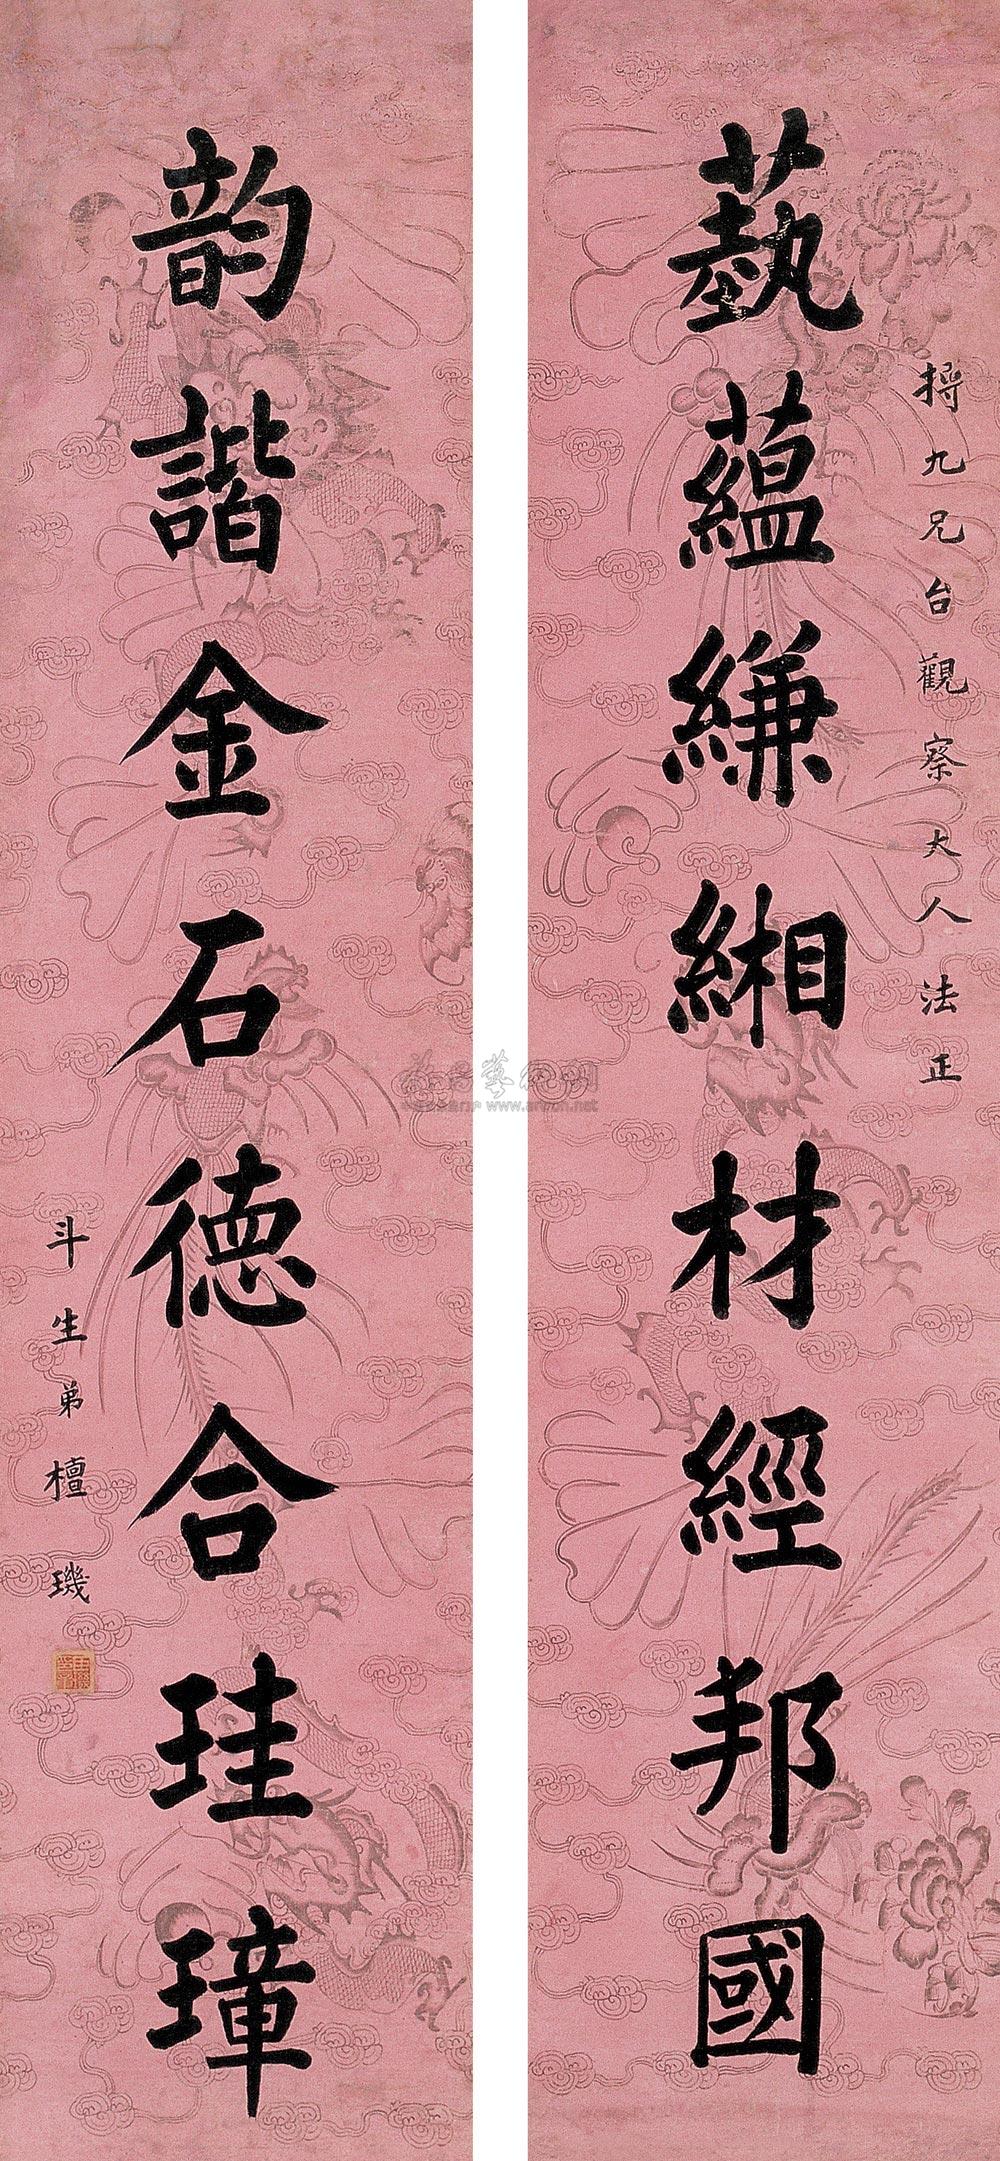 藝蘊縑緗材經邦國
搏九兄台觀察大人法正
韵諧金石德合珪璋
斗生弟檀璣
www.artxun.net